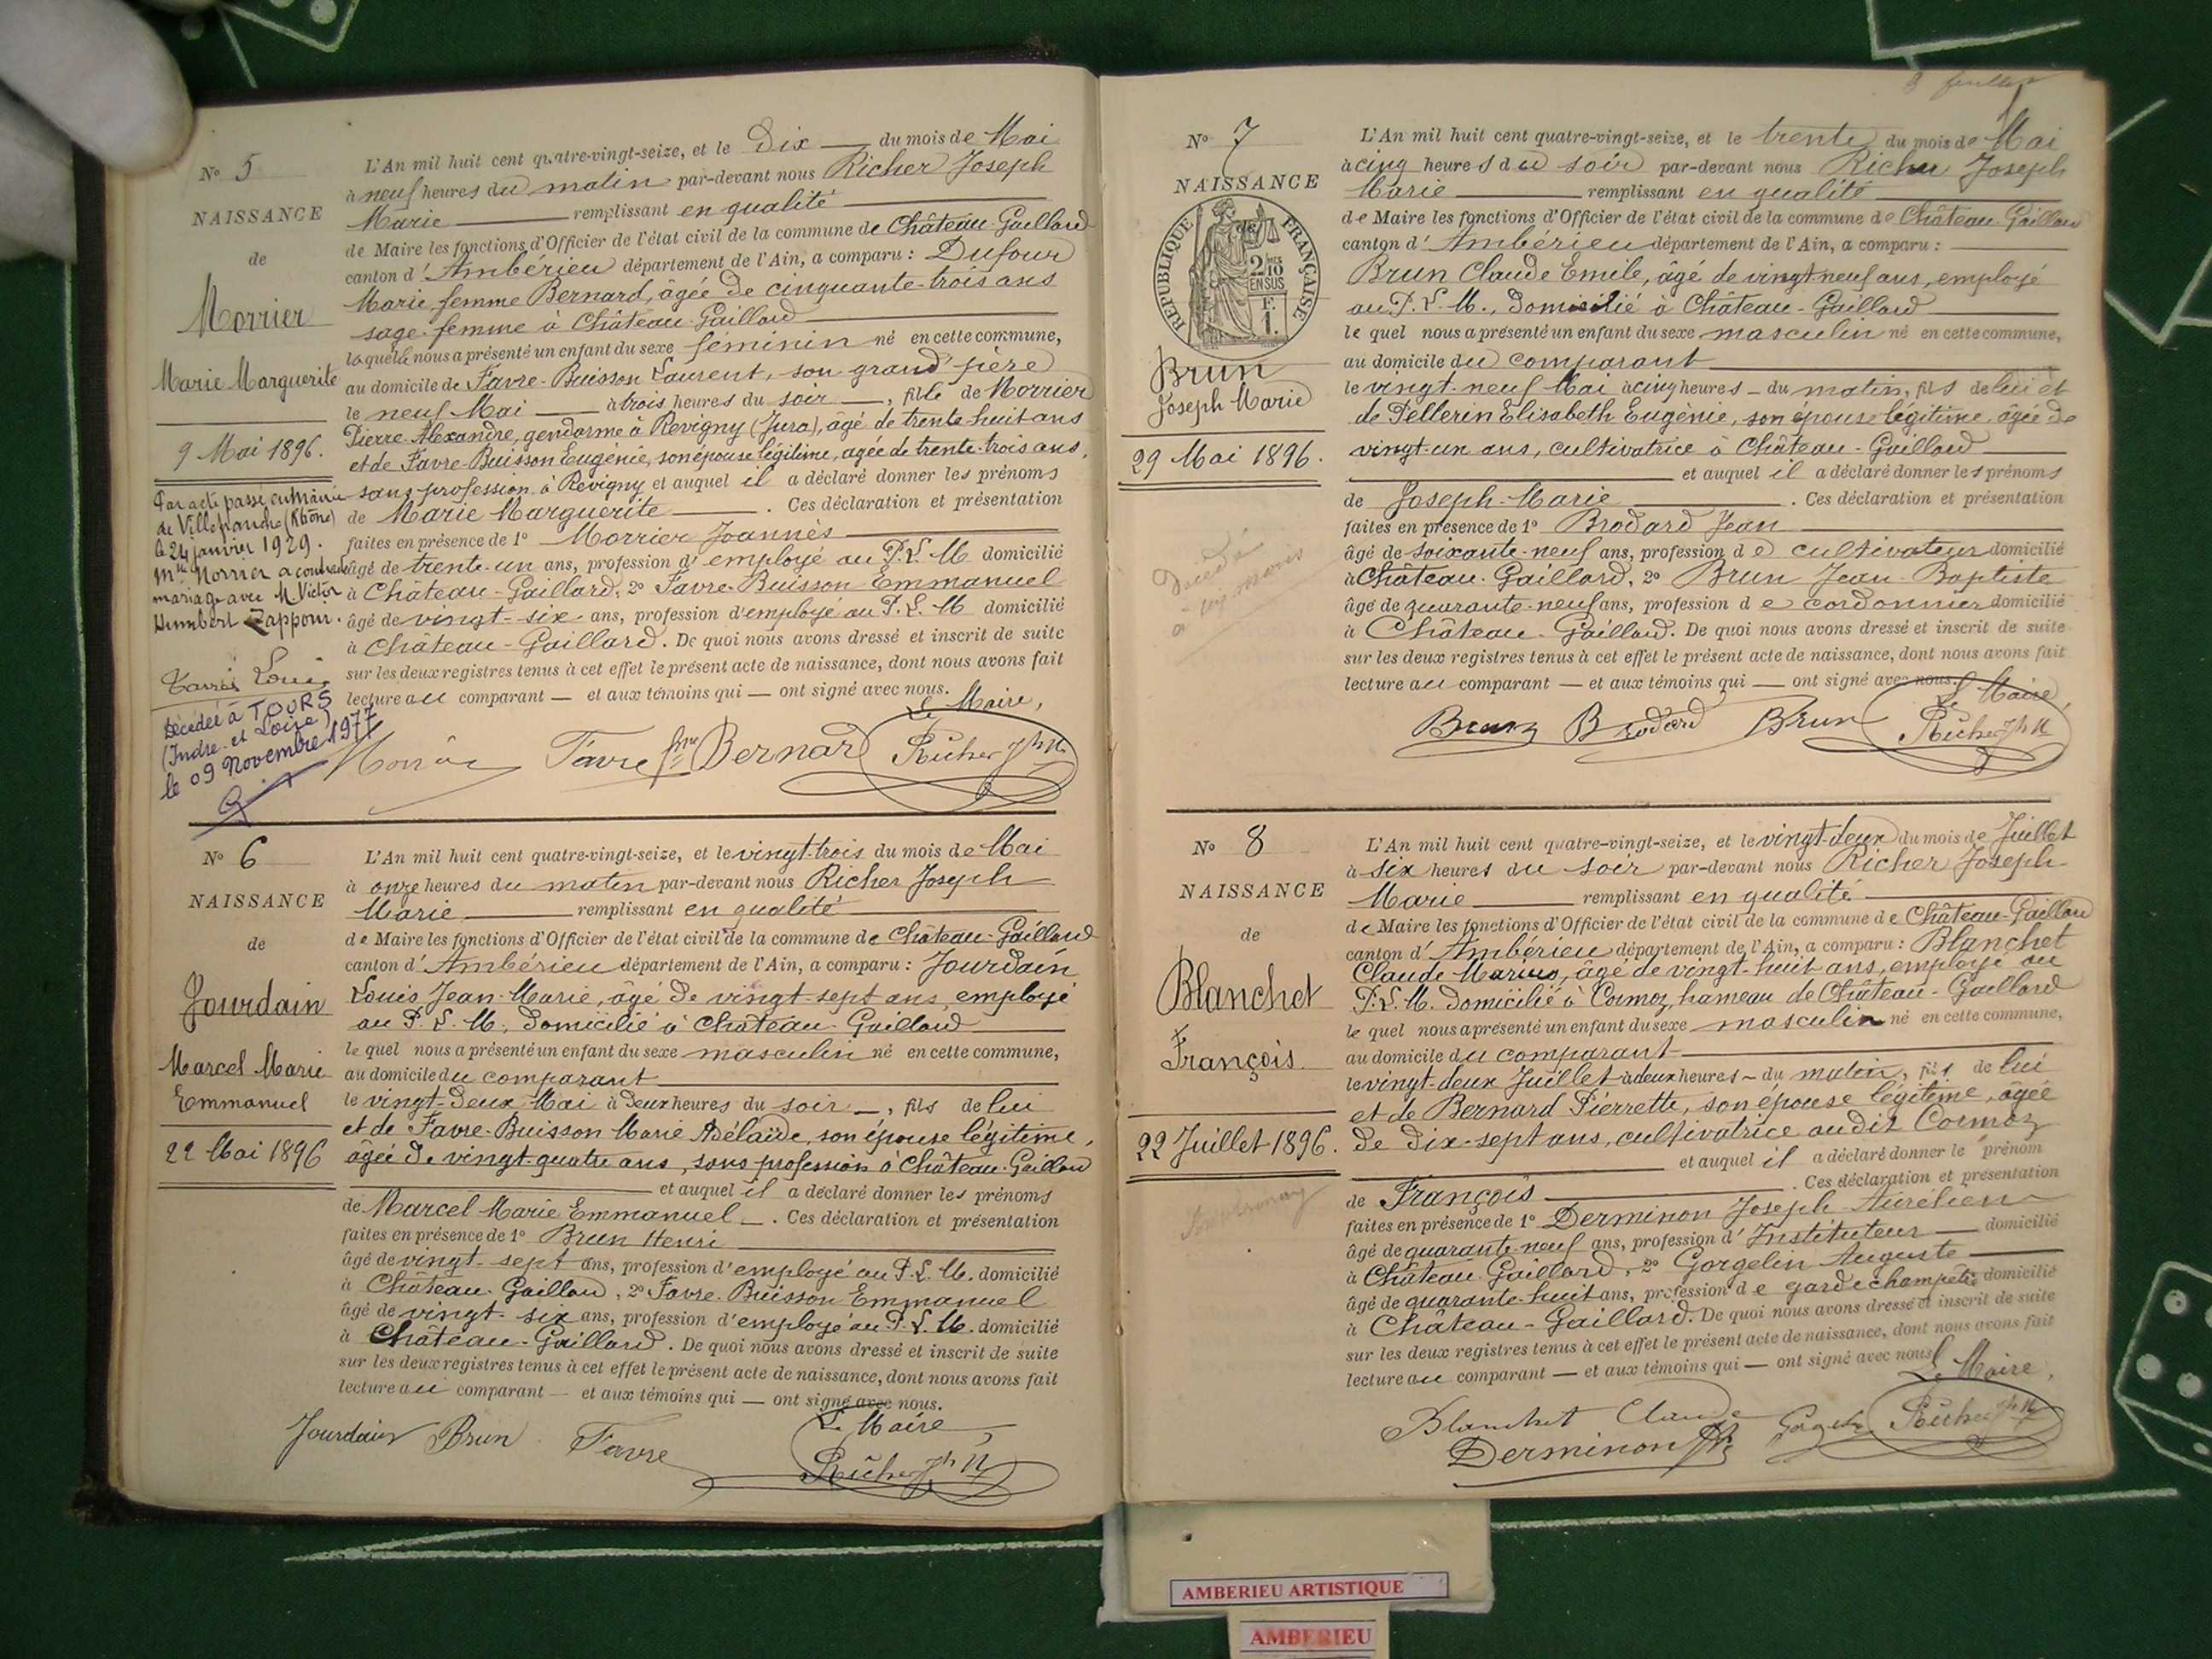 N° 5
NAISSANCE
de
Morrier
Marie Marguerite
9 Mai 1896.
Par acte passé en Mairie
de Villefranche (Rhône)
le 24 janvier 1929.
Mlle Morrier a contracté
mariage avec M Victor
Humbert Zapponi.
Décédée à TOURS
(Indre et Loire)
le 09 Novembre 1977
L'An mil huit cent quatre-vingt-seize, et le Dix du mois de Mai
à neuf heures du matin par-devant nous Richer Joseph
Marie remplissant en qualité
de Maire les fonctions d'Officier de l'état civil de la commune de Château-Gaillard
canton d'Ambérieu département de l'Ain, a comparu : Dufour
Marie femme Bernard, âgée de cinquante-trois ans
sage-femme à Château-Gaillard
laquelle nous a présenté un enfant du sexe féminin né en cette commune,
au domicile de Favre-Buisson Laurent, son grand père
le neuf Mai à trois heures du soir, fille de Morrier
Pierre Alexandre, gendarme à Revigny (Jura), âgé de trente-huit ans
et de Favre-Buisson Eugénie, son épouse légitime, agée de trente-trois ans,
sans profession à Revigny et auquel il a déclaré donner les prénoms
de Marie Marguerite . Ces déclaration et présentation
faites en présence de 1° Morrier Joannès
âgé de trente-un ans, profession d'employé au P.L.M domicilié
à Château-Gaillard, 2° Favre-Buisson Emmanuel
âgé de vingt-six ans, profession d'employé au P.L.M domicilié
à Château-Gaillard. De quoi nous avons dressé et inscrit de suite
sur les deux registres tenus à cet effet le présent acte de naissance, dont nous avons fait
lecture au comparant — et aux témoins qui — ont signé avec nous.
Le Maire,
Favre fme Bernard Richer Jh M
N° 6
NAISSANCE
de
Jourdain
Marcel Marie
Emmanuel
22 Mai 1896
L'An mil huit cent quatre-vingt-seize, et le vingt-trois du mois de Mai
à onze heures du matin par-devant nous Richer Joseph
Marie remplissant en qualité
de Maire les fonctions d'Officier de l'état civil de la commune de Château-Gaillard
canton d'Ambérieu département de l'Ain, a comparu : Jourdain
Louis Jean-Marie, âgé de vingt-sept ans, employé
au P.L.M., domicilié à Château-Gaillard
le quel nous a présenté un enfant du sexe masculin né en cette commune,
au domicile du comparant
le vingt-deux Mai à deux heures du soir —, fils de lui
et de Favre-Buisson Marie Adélaïde, son épouse légitime,
âgée de vingt-quatre ans, sans profession à Château-Gaillard
et auquel il a déclaré donner les prénoms
de Marcel Marie Emmanuel —. Ces déclaration et présentation
faites en présence de 1° Brun Henri
âgé de vingt-sept ans, profession d'employé au P.L.M. domicilié
à Château-Gaillard, 2° Favre-Buisson Emmanuel
âgé de vingt-six ans, profession d'employé au P.L.M. domicilié
à Château-Gaillard. De quoi nous avons dressé et inscrit de suite
sur les deux registres tenus à cet effet le présent acte de naissance, dont nous avons fait
lecture au comparant — et aux témoins qui — ont signé avec nous.
Le Maire,
Jourdain Brun Favre Richer Jh M
N° 7
NAISSANCE
RÉPUBLIQUE FRANÇAISE
2/10 EN SUS
F. 1.
Brun
Joseph Marie
29 Mai 1896.
L'An mil huit cent quatre-vingt-seize, et le trente du mois de Mai
à cinq heures du soir par-devant nous Richer Joseph
Marie remplissant en qualité
de Maire les fonctions d'Officier de l'état civil de la commune de Château-Gaillard
canton d'Ambérieu département de l'Ain, a comparu :
Brun Claude Emile, âgé de vingt-neuf ans, employé
au P.L.M., domicilié à Château-Gaillard
le quel nous a présenté un enfant du sexe masculin né en cette commune,
au domicile du comparant
le vingt-neuf Mai à cinq heures — du matin, fils de lui et
de Pellerin Elisabeth Eugénie, son épouse légitime, âgée de
vingt-un ans, cultivatrice à Château-Gaillard
et auquel il a déclaré donner les prénoms
de Joseph-Marie . Ces déclaration et présentation
faites en présence de 1° Brodard Jean
âgé de soixante-neuf ans, profession de cultivateur domicilié
à Château-Gaillard, 2° Brun Jean-Baptiste
âgé de quarante-neuf ans, profession de cordonnier domicilié
à Château-Gaillard. De quoi nous avons dressé et inscrit de suite
sur les deux registres tenus à cet effet le présent acte de naissance, dont nous avons fait
lecture au comparant — et aux témoins qui — ont signé avec nous.
Le Maire,
Brun Brodard Brun Richer Jh M
N° 8
NAISSANCE
de
Blanchet
François
22 Juillet 1896.
L'An mil huit cent quatre-vingt-seize, et le vingt-deux du mois de Juillet
à six heures du soir par-devant nous Richer Joseph-
Marie remplissant en qualité
de Maire les fonctions d'Officier de l'état civil de la commune de Château-Gaillard
canton d'Ambérieu département de l'Ain, a comparu : Blanchet
Claude Marius, âgé de vingt-huit ans, employé au
P.L.M. domicilié à Cormoz, hameau de Château-Gaillard
le quel nous a présenté un enfant du sexe masculin né en cette commune,
au domicile du comparant
le vingt-deux Juillet à deux heures — du matin, fils de lui
et de Bernard Pierrette, son épouse légitime, âgée
de dix-sept ans, cultivatrice audit Cormoz
et auquel il a déclaré donner le prénom
de François . Ces déclaration et présentation
faites en présence de 1° Derminon Joseph-Aurélien
âgé de quarante-neuf ans, profession d'Instituteur — domicilié
à Château-Gaillard, 2° Gorgelin Auguste
âgé de quarante-huit ans, profession de garde champêtre domicilié
à Château-Gaillard. De quoi nous avons dressé et inscrit de suite
sur les deux registres tenus à cet effet le présent acte de naissance, dont nous avons fait
lecture au comparant — et aux témoins qui — ont signé avec nous.
Le Maire,
Blanchet Claude Gorgelin Richer Jh M
Derminon
AMBERIEU ARTISTIQUE
AMBERIEU